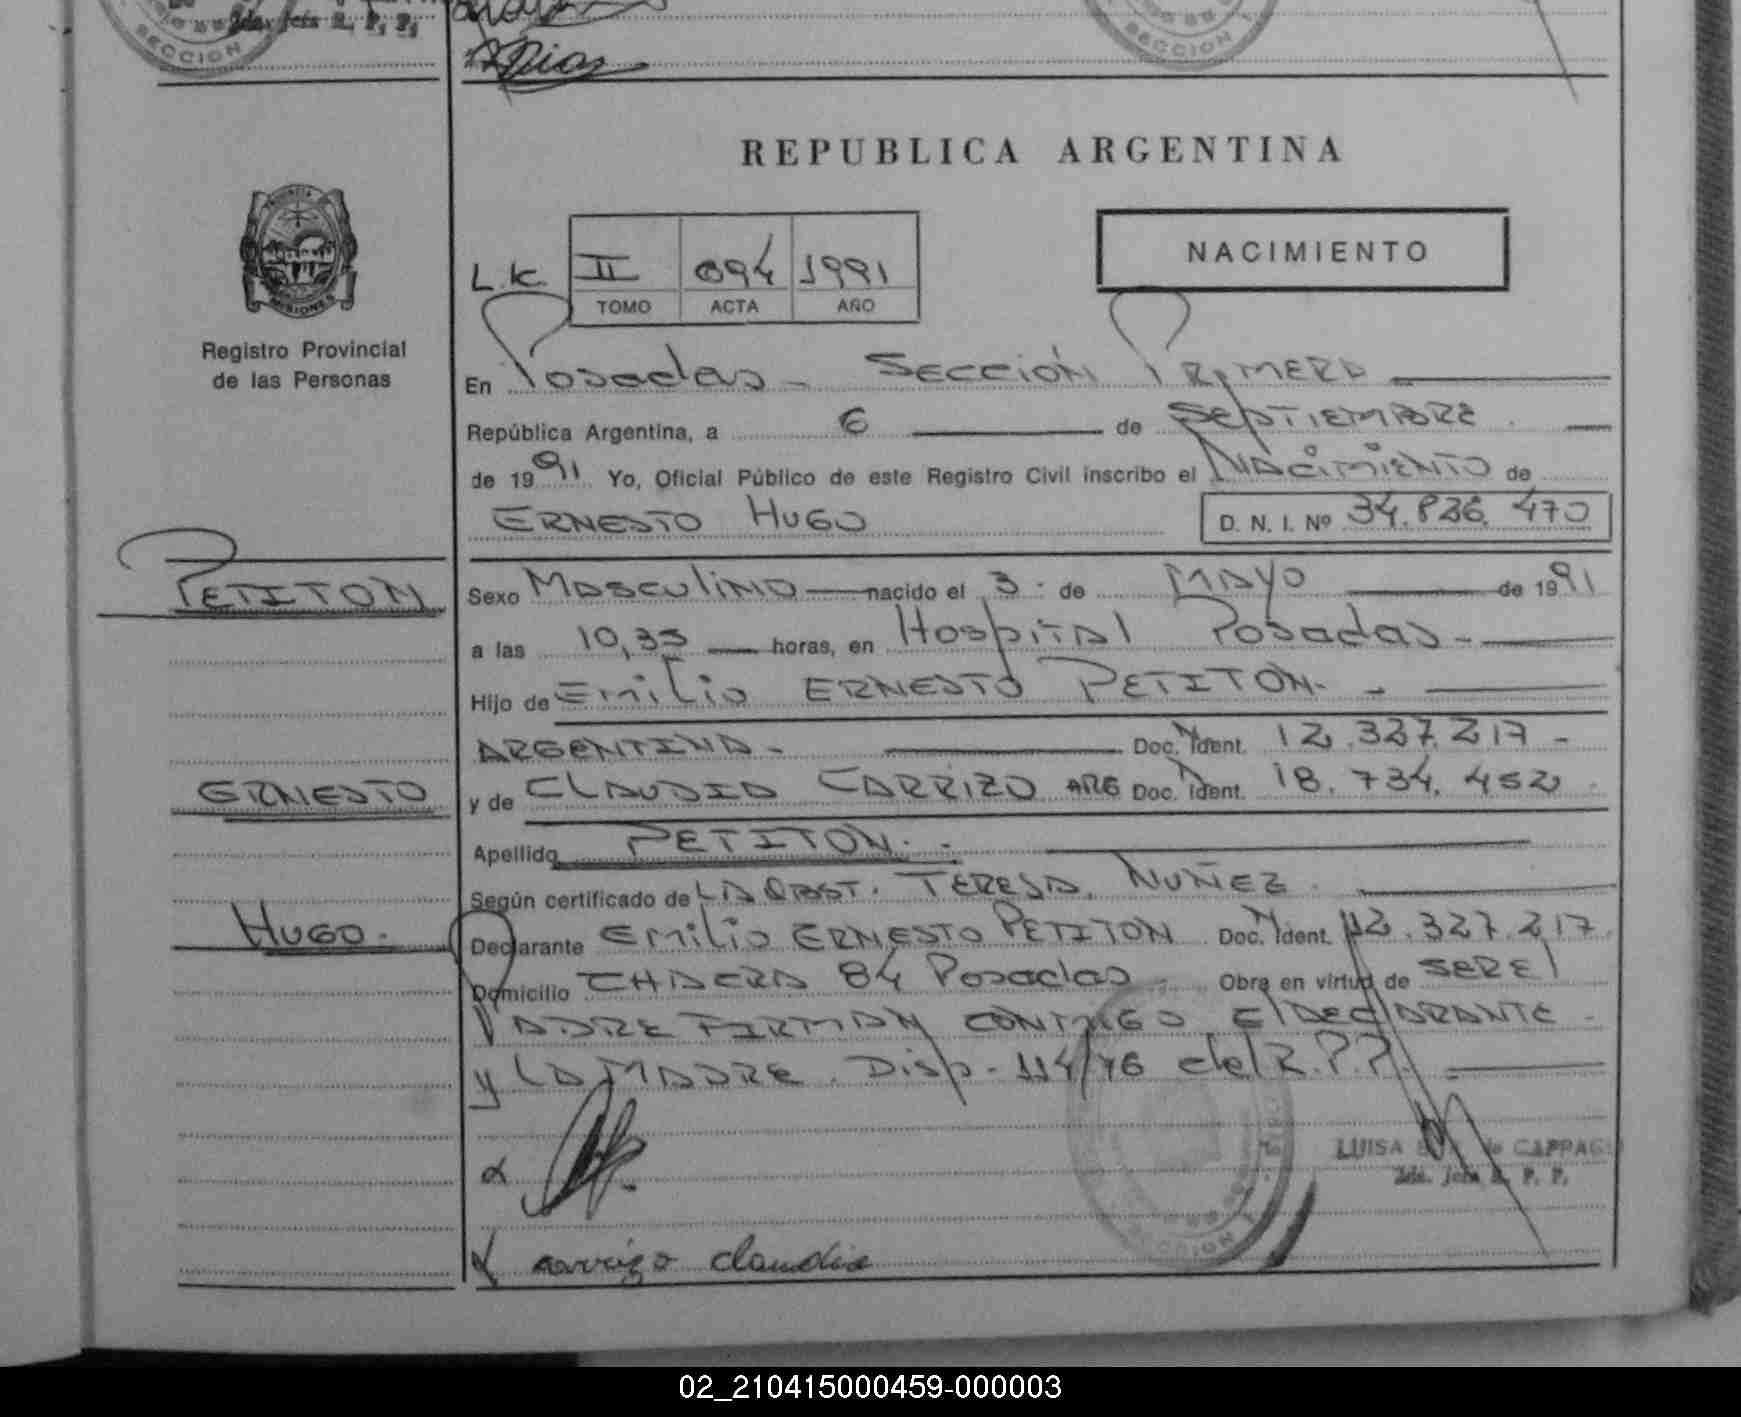 SECCION
2da. Jefa R. P. P.
SECCION
R Dias
REPUBLICA ARGENTINA
PROVINCIA
MISIONES
Registro Provincial
de las Personas
NACIMIENTO
L.K. II 094 1991
TOMO ACTA AÑO
En Posadas - SECCIÓN PRIMERA
República Argentina, a 6 de SEPTIEMBRE
de 1991 Yo, Oficial Público de este Registro Civil inscribo el NACIMIENTO de
ERNESTO HUGO D. N. I. Nº 34.826.470
PETITON
Sexo MASCULINO nacido el 3 de MAYO de 1991
a las 10,35 horas, en Hospital Posadas -
Hijo de Emilio ERNESTO PETITON - -
ARGENTINA - Doc. Ident. 12.327.217 -
ERNESTO
y de CLAUDIA CARRIZO ARG Doc. Ident. 18.734.452
Apellido PETITON. -
Según certificado de LA OBST. TERESA NUÑEZ
HUGO.
Declarante Emilio ERNESTO PETITON Doc. Ident. 12.327.217.
Domicilio CHACRA 84 Posadas - Obra en virtud de SER El
PADRE FIRMAN CONMIGO El DEClARANTE -
y LA MADRE. Disp. 114/76 del R.P.P.
LUISA de CAPPAG
2da. Jefa R. P. P.
SECCION
carrizo claudia
02_210415000459-000003